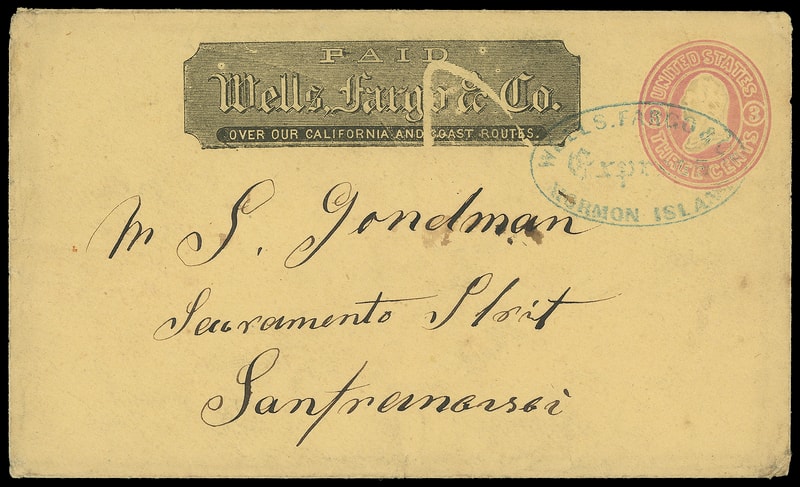 PAID
Wells, Fargo & Co.
OVER OUR CALIFORNIA AND COAST ROUTES.
UNITED STATES
3 3
THREE CENTS
WELLS, FARGO & CO
Express
MORMON ISLAND
M S. Gondman
Sacramento Strit
Sanfrancisci